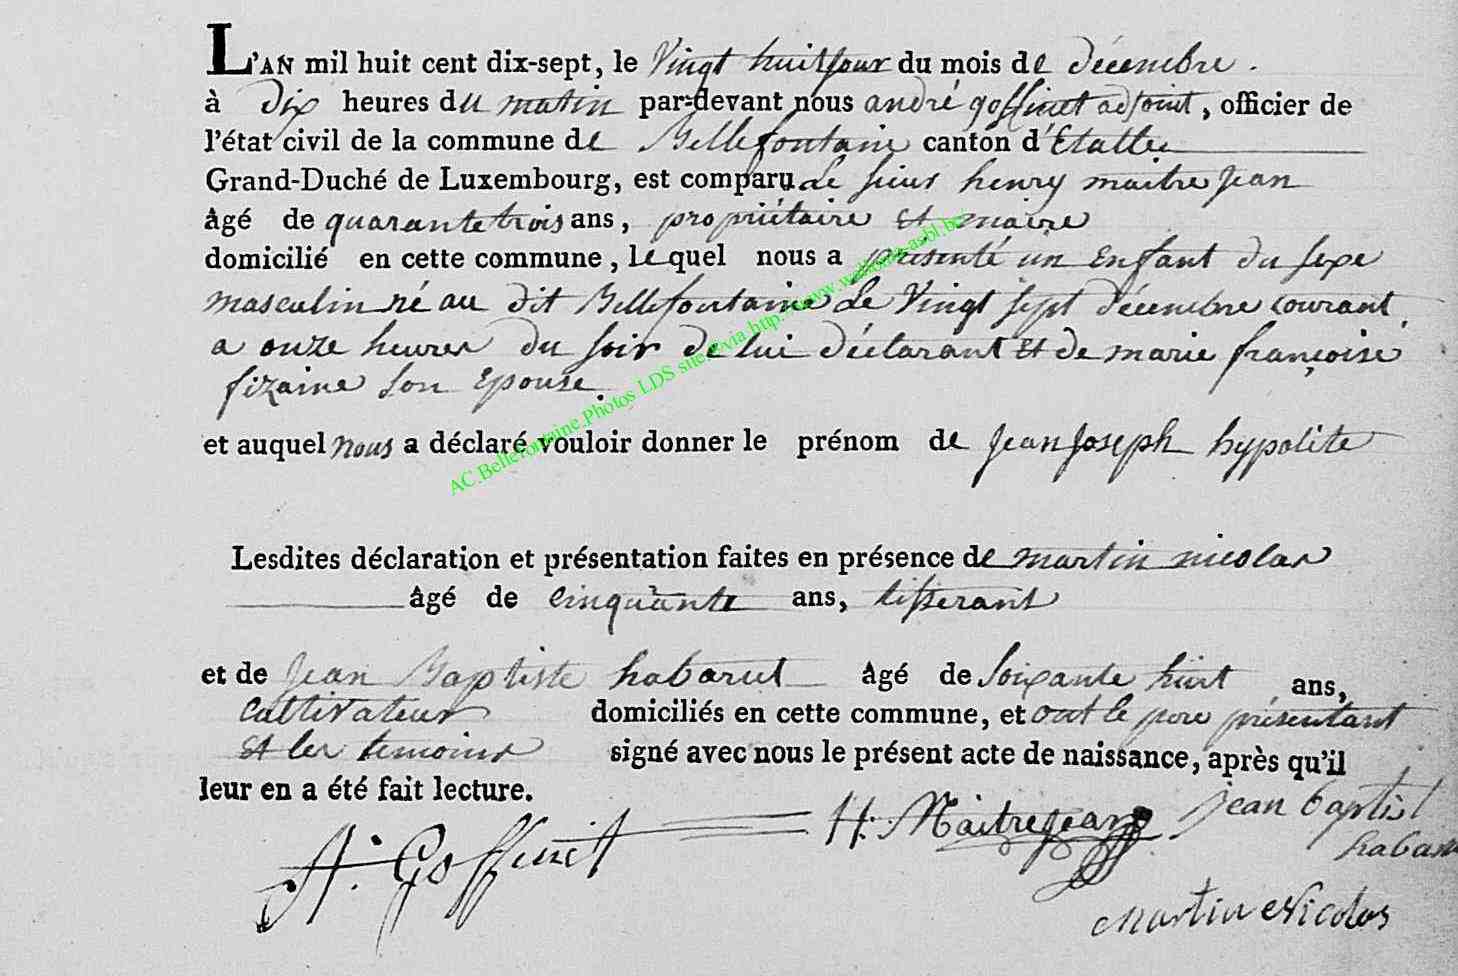 L'AN mil huit cent dix-sept, le Vingt huit jour du mois de décembre.
à dix heures du matin par-devant nous andré goffinet adjoint, officier de
l'état civil de la commune de Bellefontaine canton d'Etalle
Grand-Duché de Luxembourg, est comparu le sieur henry maitre jean
âgé de quarante trois ans, propriétaire et maire
domicilié en cette commune, lequel nous a présenté un Enfant du sexe
masculin né au dit Bellefontaine le Vingt sept décembre courant
a onze heures du soir de lui déclarant et de marie françoise
fizaine son Epouse.
et auquel nous a déclaré vouloir donner le prénom de jean joseph hypolite
Lesdites déclaration et présentation faites en présence de martin nicolas
âgé de cinquante ans, tisserant
et de jean Baptiste habarut âgé de soixante huit ans,
cultivateur domiciliés en cette commune, et ont le pere présentant
et les temoins signé avec nous le présent acte de naissance, après qu'il
leur en a été fait lecture.
A. Goffinet H. Maitrejean jean baptist
martin Nicolas
AC.Bellefontaine.Photos LDS site